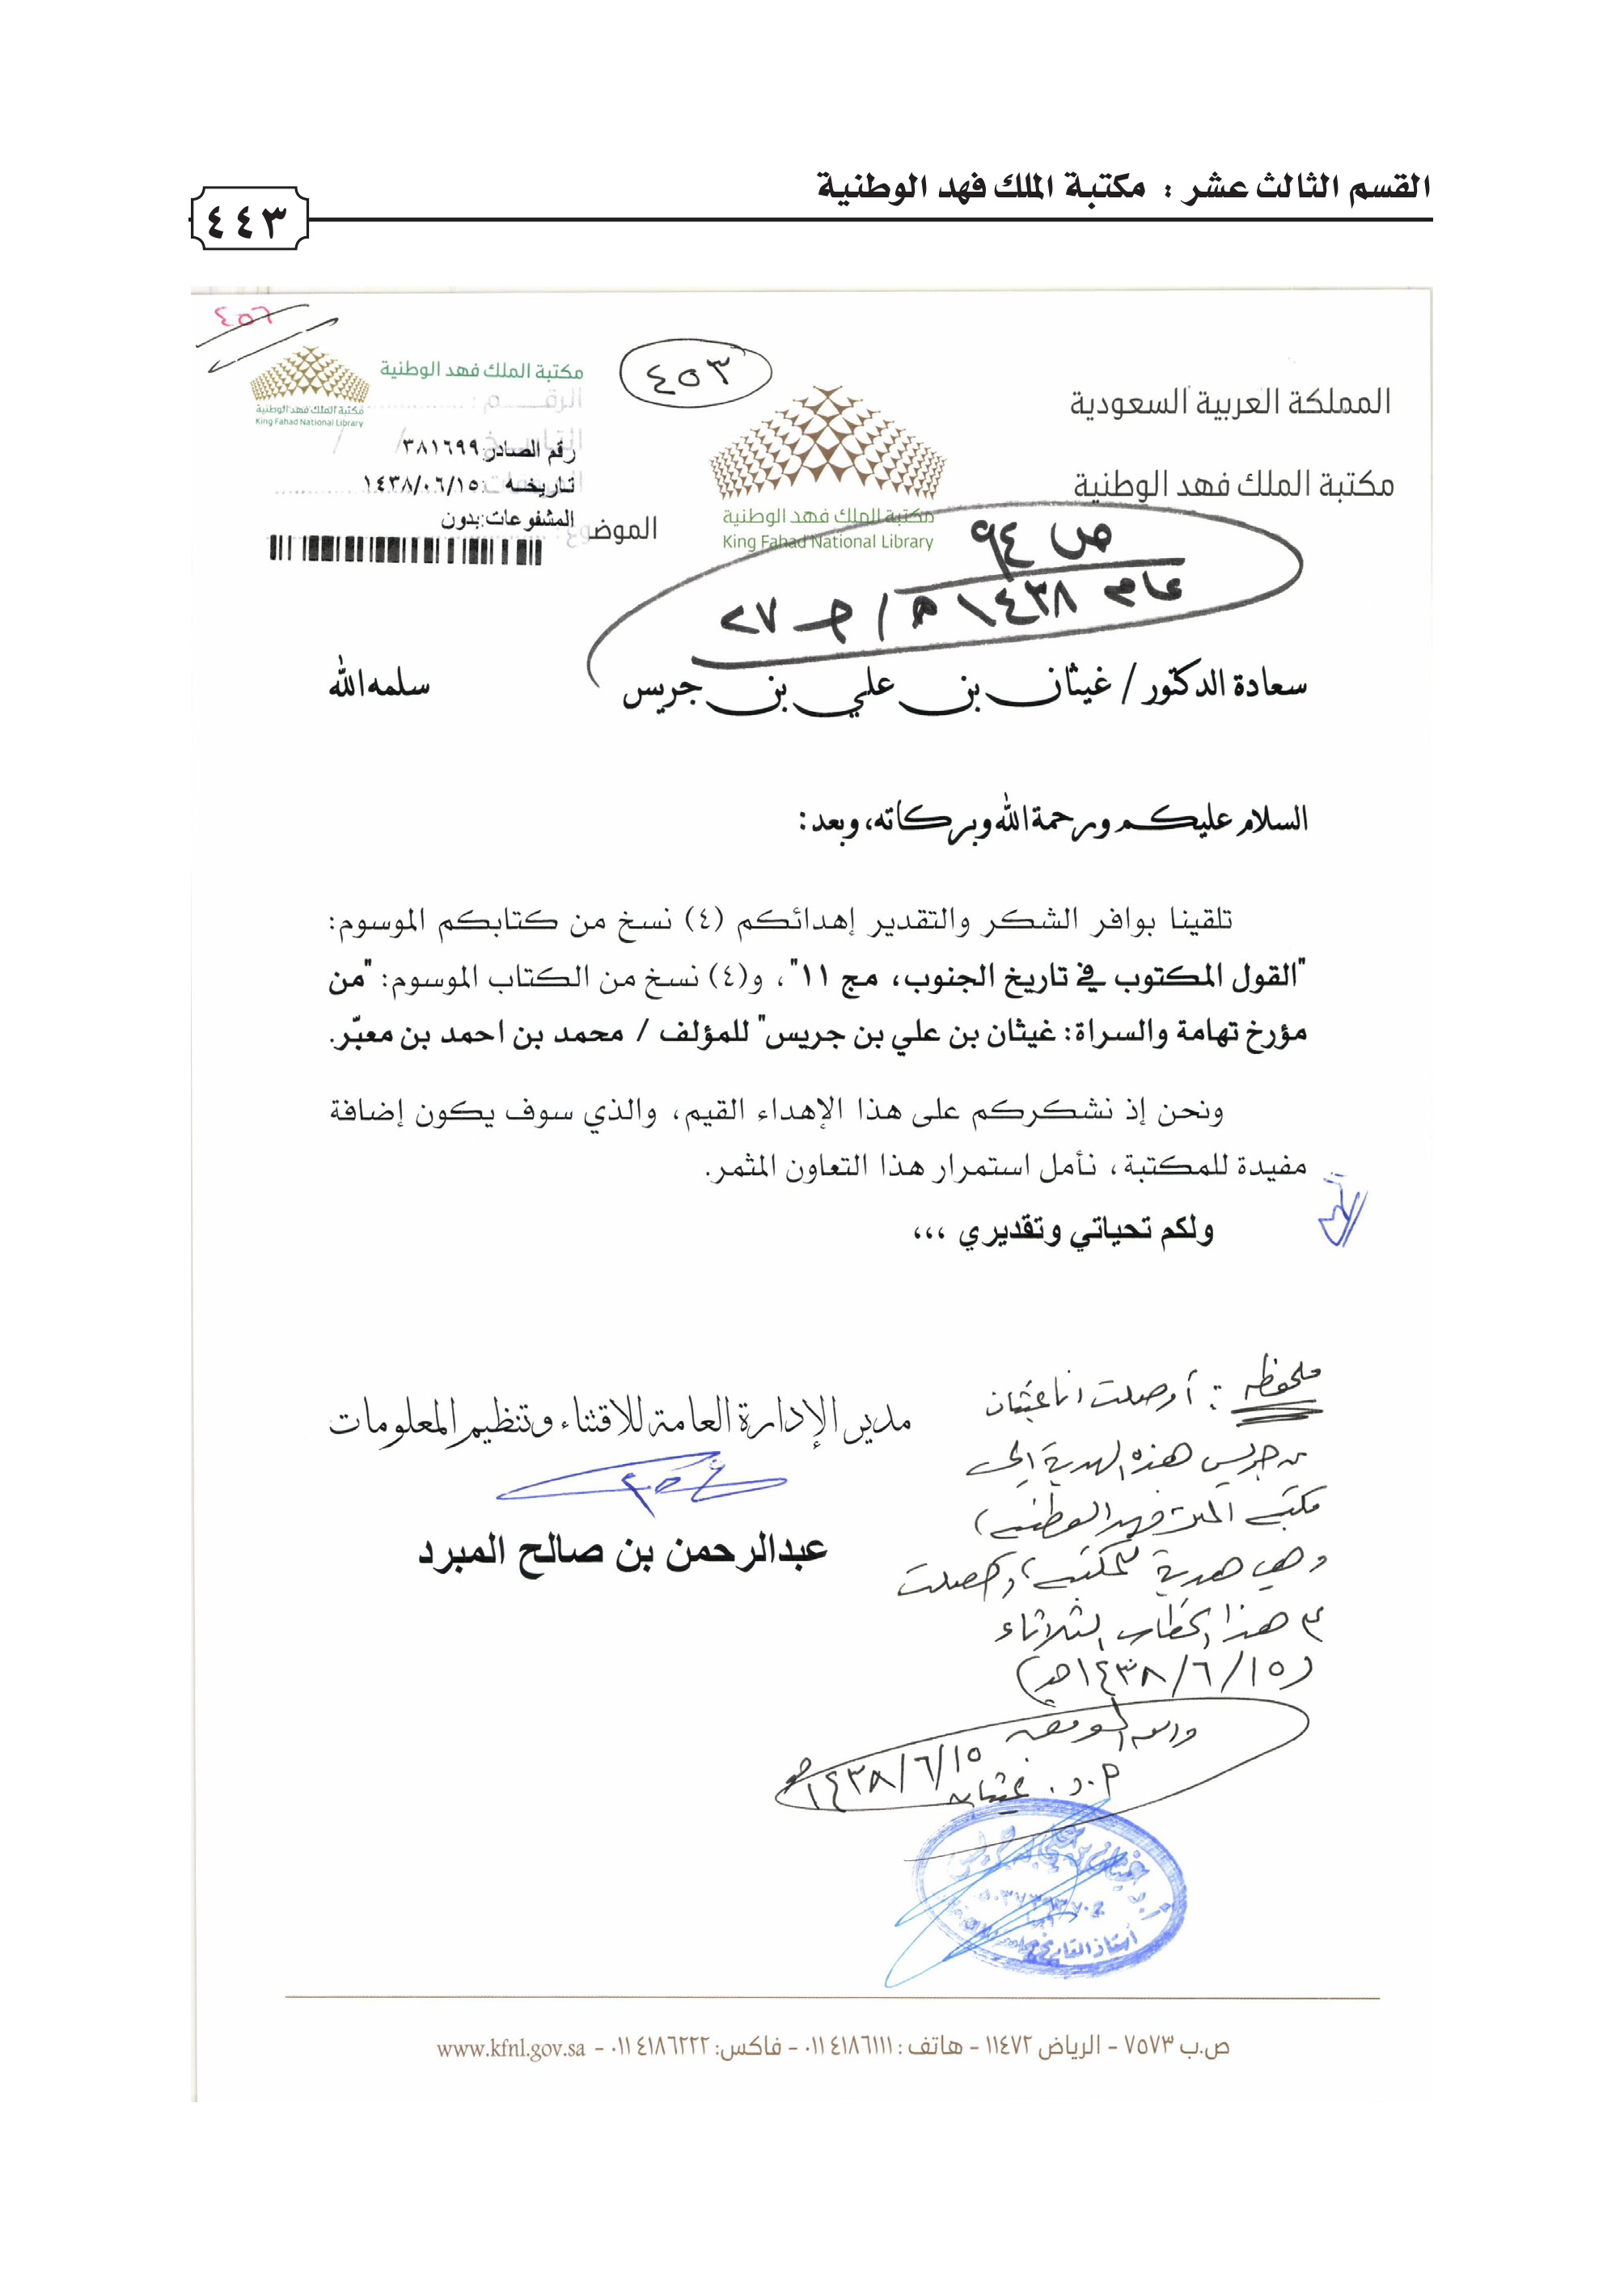 القسم الثالث عشر : مكتبة الملك فهد الوطنية
٤٤٣
٤٥٦
٤٥٣
المملكة العربية السعودية
مكتبة الملك فهد الوطنية
مكتبة الملك فهد الوطنية
King Fahad National Library
مكتبة الملك فهد الوطنية
مكتبة الملك فهد الوطنية
King Fahad National Library
الرقم :
رقم الصادر: ٣٨١٦٩٩
تاريخه : ١٤٣٨/٠٦/١٥
المشفوعات: بدون
الموضوع
ص ٩٤
عام ١٤٣٨هـ / جـ ٢٧
سعادة الدكتور / غيثان بن علي بن جريس سلمه الله
السلام عليكم ورحمة الله وبركاته، وبعد:
تلقينا بوافر الشكر والتقدير إهدائكم (٤) نسخ من كتابكم الموسوم:
"القول المكتوب في تاريخ الجنوب، مج ١١"، و(٤) نسخ من الكتاب الموسوم: "من
مؤرخ تهامة والسراة: غيثان بن علي بن جريس" للمؤلف / محمد بن احمد بن معبّر.
ونحن إذ نشكركم على هذا الإهداء القيم، والذي سوف يكون إضافة
مفيدة للمكتبة، نأمل استمرار هذا التعاون المثمر.
ولكم تحياتي وتقديري ،،،
مدير الإدارة العامة للاقتناء وتنظيم المعلومات
عبدالرحمن بن صالح المبرد
ملحوظه : أرسلت انا غيثان
بن جريس هذه الهدية إلى
مكتبة الملك فهد الوطنية)
وهي هدية للمكتبة، وحصلت
هذا الخطاب الثلاثاء
(١٤٣٨/٦/١٥هـ)
والله الموفق
أ.د. غيثان ١٤٣٨/٦/١٥هـ
أستاذ التاريخ
ص.ب ٧٥٧٣ - الرياض ١١٤٧٢ - هاتف : ٠١١٤١٨٦١١١ - فاكس: ٠١١٤١٨٦٢٢٢ - www.kfnl.gov.sa